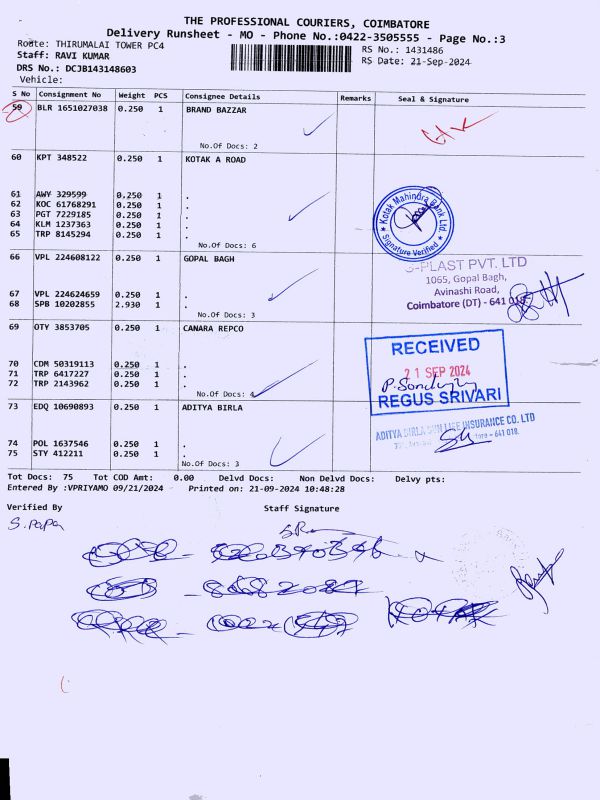 THE PROFESSIONAL COURIERS, COIMBATORE
Delivery Runsheet - MO - Phone No.:0422-3505555 - Page No.:3
Route: THIRUMALAI TOWER PC4
Staff: RAVI KUMAR
RS No.: 1431486
DRS No.: DCJB143148603
RS Date: 21-Sep-2024
Vehicle:
S No Consignment No Weight PCS Consignee Details Remarks Seal & Signature
59 BLR 1651027038 0.250 1 BRAND BAZZAR
No.Of Docs: 2
60 KPT 348522 0.250 1 KOTAK A ROAD
61 AWY 329599 0.250 1 .
62 KOC 61768291 0.250 1 .
63 PGT 7229185 0.250 1 .
64 KLM 1237363 0.250 1 .
65 TRP 8145294 0.250 1 .
No.Of Docs: 6
Kotak Mahindra Bank Ltd.
Signature Verified
66 VPL 224608122 0.250 1 GOPAL BAGH
67 VPL 224624659 0.250 1 .
68 SPB 10202855 2.930 1 .
No.Of Docs: 3
-PLAST PVT. LTD
1065, Gopal Bagh,
Avinashi Road,
Coimbatore (DT) - 641 018.
69 OTY 3853705 0.250 1 CANARA REPCO
70 CDM 50319113 0.250 1 .
71 TRP 6417227 0.250 1 .
72 TRP 2143962 0.250 1 .
No.Of Docs: 4
RECEIVED
21 SEP 2024
REGUS SRIVARI
73 EDQ 10690893 0.250 1 ADITYA BIRLA
74 POL 1637546 0.250 1 .
75 STY 412211 0.250 1 .
No.Of Docs: 3
ADITYA BIRLA SUN LIFE INSURANCE CO. LTD
- 641 018.
Tot Docs: 75 Tot COD Amt: 0.00 Delvd Docs: Non Delvd Docs: Delvy pts:
Entered By :VPRIYAMO 09/21/2024 Printed on: 21-09-2024 10:48:28
Verified By Staff Signature
S. Papa